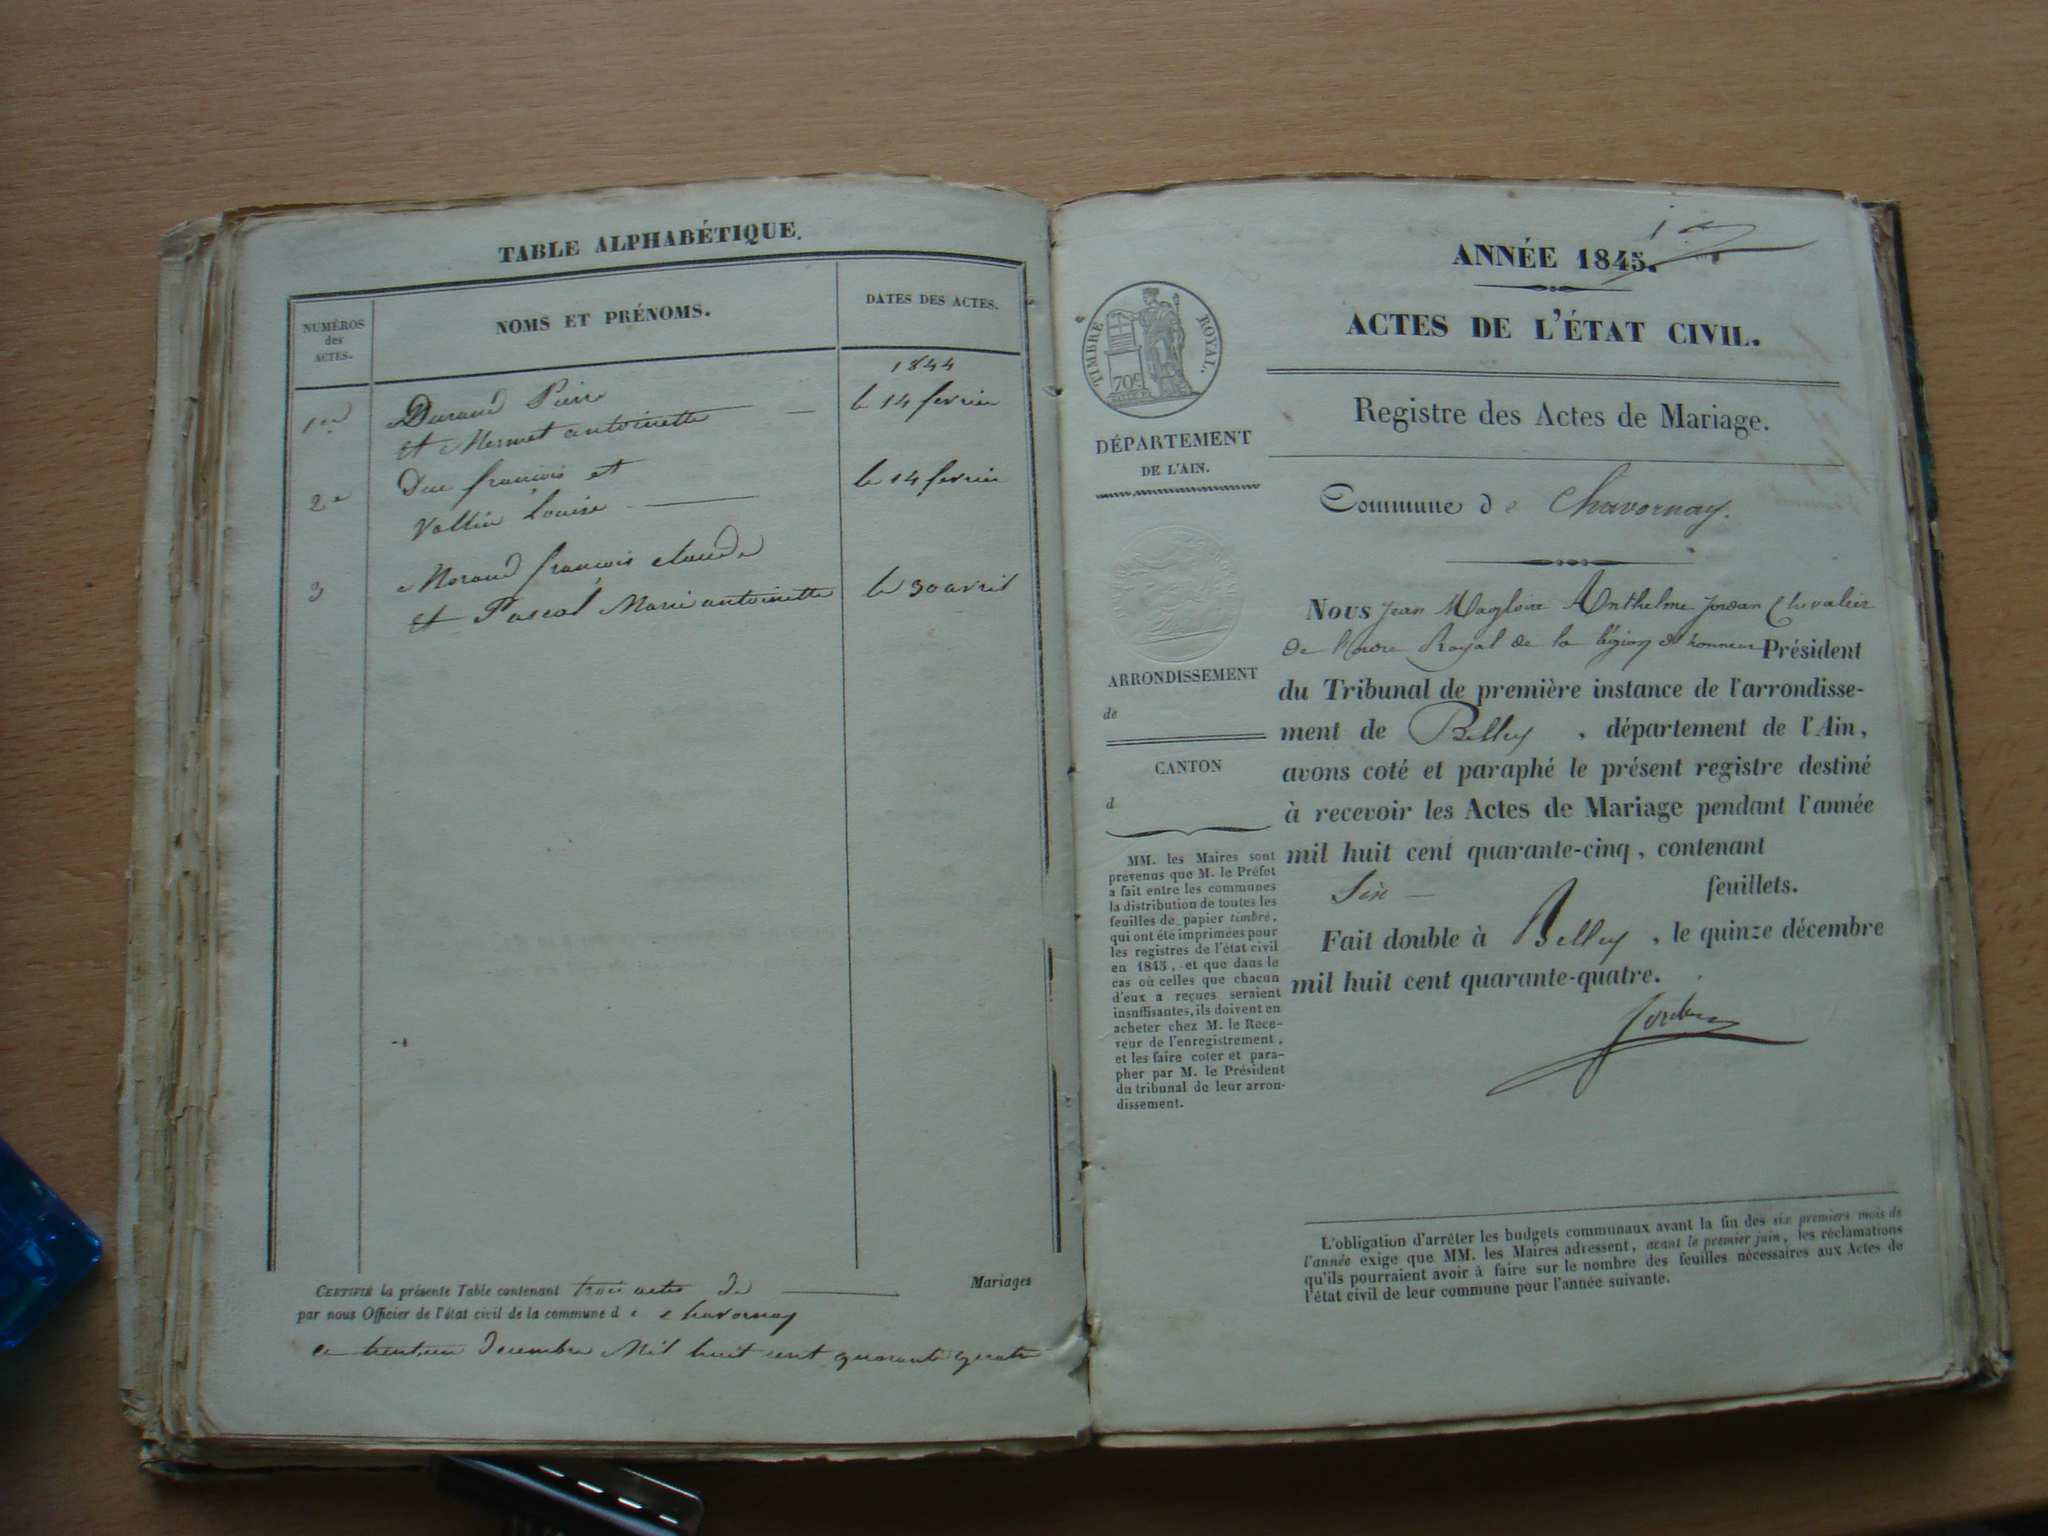 TABLE ALPHABÉTIQUE.
NUMÉROS
des
ACTES.
NOMS ET PRÉNOMS.
DATES DES ACTES.
1844
1er Durand Pierre
et Mermet antoinette le 14 fevrier
2e Duc françois et
Vallin Louise le 14 fevrier
3 Morand françois claude
et Pascal Marie antoinette le 30 avril
CERTIFIÉ la présente Table contenant trois actes de Mariages
par nous Officier de l'état civil de la commune de chavornay
ce trente un Decembre Mil huit cent quarante quatre
ANNÉE 1845.
ACTES DE L'ÉTAT CIVIL.
Registre des Actes de Mariage.
Commune de Chavornay.
TIMBRE ROYAL.
70c
DÉPARTEMENT
DE L'AIN.
ARRONDISSEMENT
de
CANTON
d
MM. les Maires sont
prévenus que M. le Préfet
a fait entre les communes
la distribution de toutes les
feuilles de papier timbré,
qui ont été imprimées pour
les registres de l'état civil
en 1845, et que dans le
cas où celles que chacun
d'eux a reçues seraient
insuffisantes, ils doivent en
acheter chez M. le Rece-
veur de l'enregistrement,
et les faire coter et para-
pher par M. le Président
du tribunal de leur arron-
dissement.
Nous Jean Magloire Anthelme Jordan Chevalier
de l'ordre Royal de la légion d'honneur Président
du Tribunal de première instance de l'arrondisse-
ment de Belley, département de l'Ain,
avons coté et paraphé le présent registre destiné
à recevoir les Actes de Mariage pendant l'année
mil huit cent quarante-cinq, contenant
Six feuillets.
Fait double à Belley, le quinze décembre
mil huit cent quarante-quatre.
Jordan
L'obligation d'arrêter les budgets communaux avant la fin des six premiers mois de
l'année exige que MM. les Maires adressent, avant le premier juin, les réclamations
qu'ils pourraient avoir à faire sur le nombre des feuilles nécessaires aux Actes de
l'état civil de leur commune pour l'année suivante.